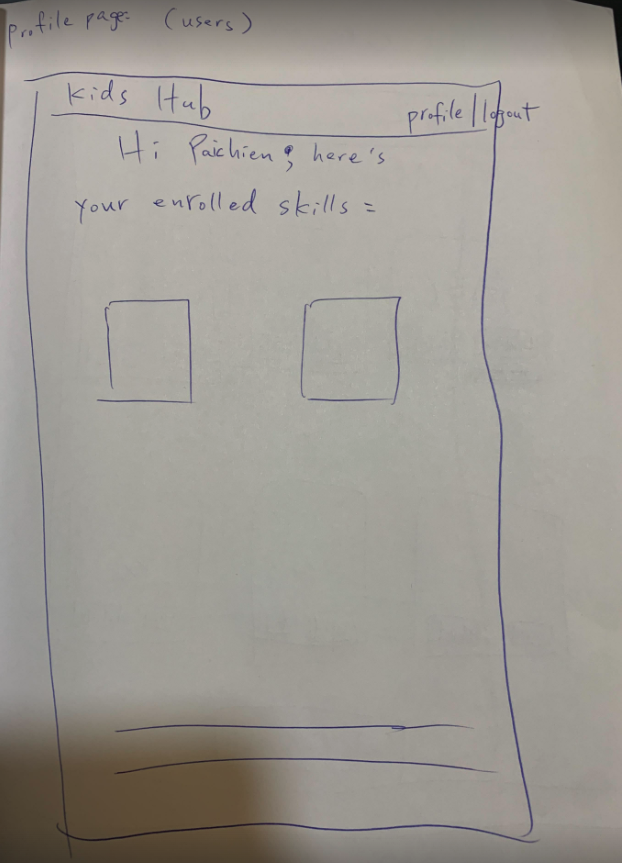 Profile page: (users)
Kids Hub
profile/logout
Hi Paichien; here's
your enrolled skills =